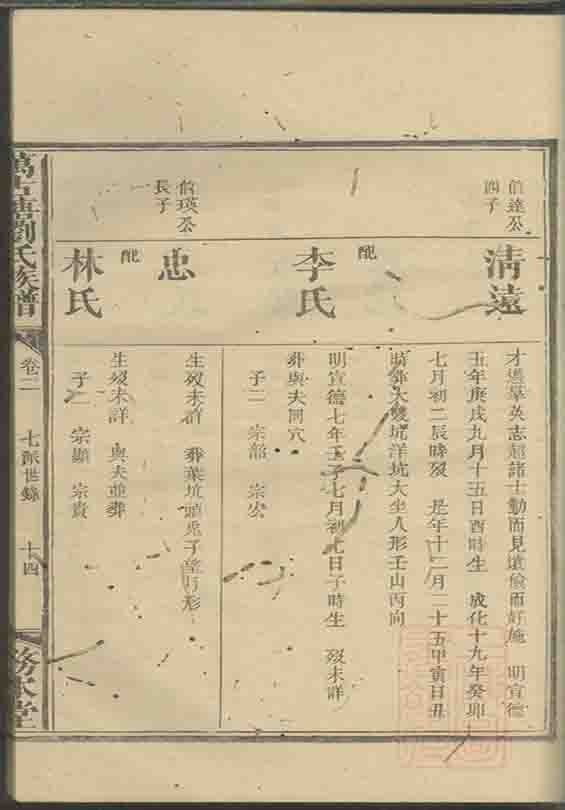 伯達公
四子
清遠
才邁羣英志超諸士勤而見遠儉而好施 明宣德
五年庚戌九月十五日酉時生 成化十九年癸卯
七月初二辰時歿 是年十二月二十五甲寅日丑
時葬大雙坑洋坑大坐人形壬山丙向
配
李氏
明宣德七年壬子七月初七日子時生 歿未詳
葬與夫同穴
子二 宗韶 宗安
伯瑛公
長子
忠
生歿未詳 葬葉坑頭兎子望月形
配
林氏
生歿未詳 與夫並葬
子二 宗顯 宗貴
劉氏族譜
卷二
七派世錄
十四
本堂